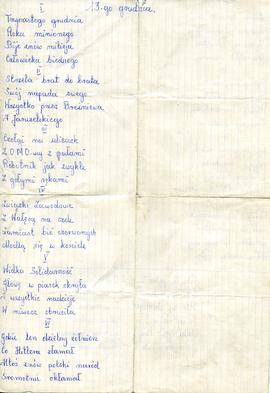 13-go grudnia.
I
Trzynastego grudnia
Roku minionego
Bije znów milicja
Człowieka biednego
II
Strzela brat do brata
Swój napada swego
Wszystko przez Breżniewa
A Jaruzelskiego
III
Czołgi na ulicach
ZOMO-wcy z pałami
Robotnik jak zwykle
Z gołymi rękami
IV
Związki Zawodowe
Z Wałęsą na czele
Zamiast bić czerwonych
Modlą się w kościele
V
Wielka Solidarność
Głowę w piasek skryła
A wszystkie nadzieje
W niwecz obróciła
VI
Gdzie ten dzielny żołnierz
Co Hitlera złamał
Ktoś znów polski naród
Sromotnie okłamał